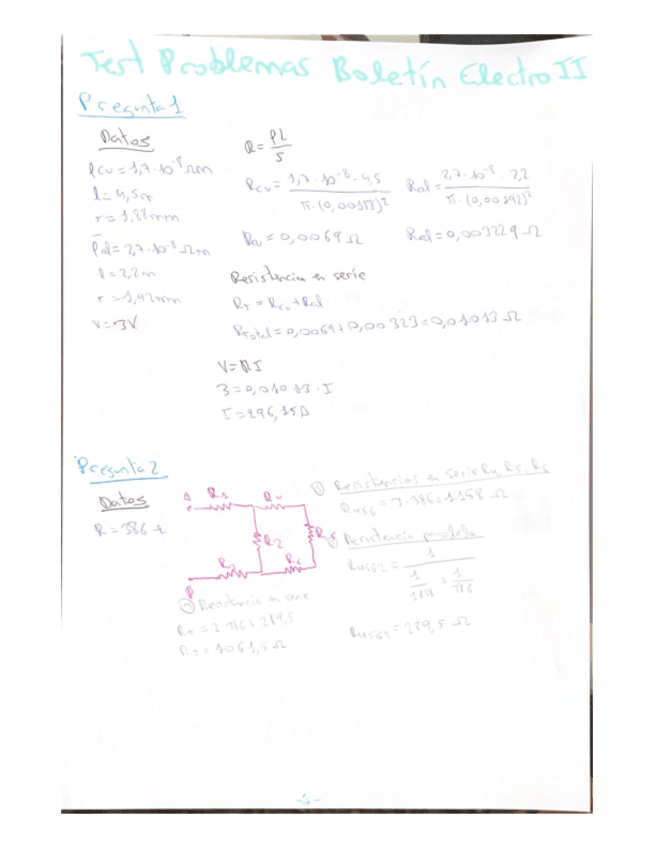 Test Problemas Boletín Electro II
Pregunta 1
Datos
ρcu = 1,7·10⁻⁸ Ωm
l = 4,5m
r = 1,88mm
ρal = 2,7·10⁻⁸ Ωm
l = 2,2m
r = 1,42mm
V = 3V
R = ρL/S
Rcu = 1,7·10⁻⁸·4,5 / π·(0,00188)²
Rcu = 0,0069 Ω
Ral = 0,003229 Ω
Resistencia en serie
RT = Rcu + Ral
RTotal = 0,0069 + 0,00323 = 0,01013 Ω
V = RI
3 = 0,01013 · I
I = 296,15A
Pregunta 2
Datos
R = 386 Ω
A
R4
R5
R2
Resistencias en serie R4, R5, R6
R456 = 3·386 = 1158 Ω
Resistencia paralela
R4562 =
R4562 = 289,5 Ω
Resistencia en serie
RT = 1061,5 Ω